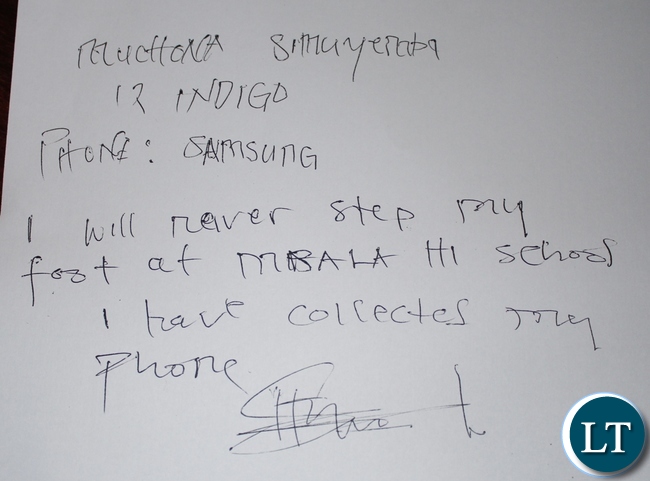 muchaka simuyemba
12 INDIGO
PHONE: SAMSUNG
I will never step my
foot at MBALA HI school
I have collectes my
phone
LT